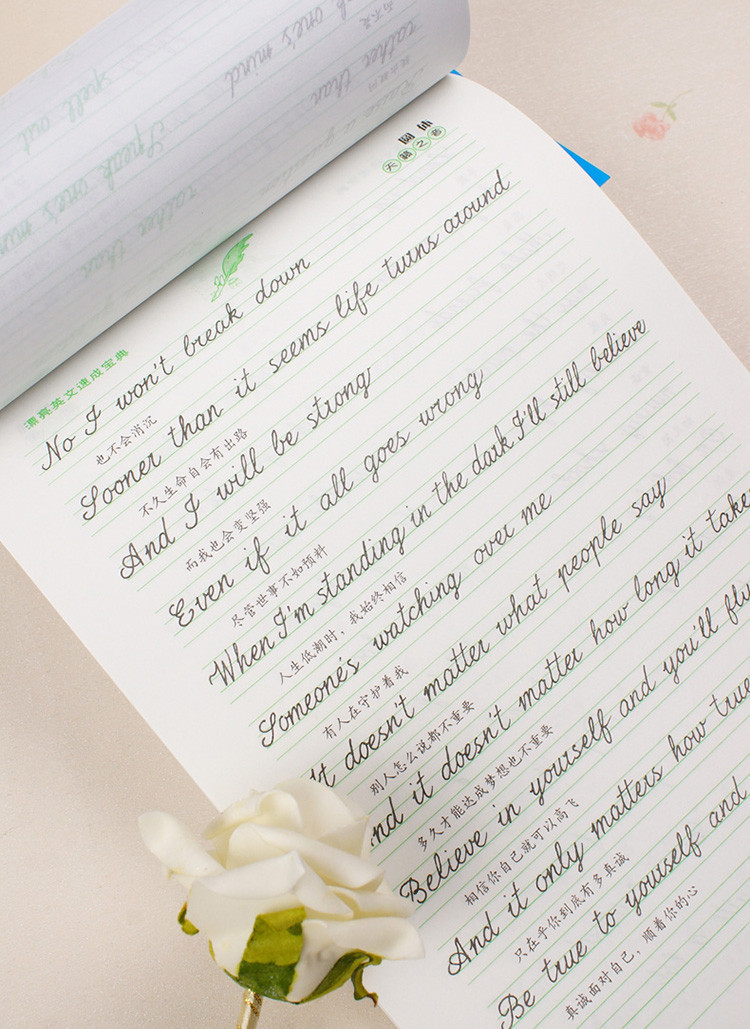 圆体
天籁之音
漂亮英文速成宝典
No I won't break down
也不会消沉
Sooner than it seems life turns around
不久生命自会有出路
And I will be strong
而我也会变坚强
Even if it all goes wrong
尽管世事不如预料
When I'm standing in the dark I'll still believe
人生低潮时，我始终相信
Someone's watching over me
有人在守护着我
It doesn't matter what people say
别人怎么说都不重要
And it doesn't matter how long it take
多久才能达成梦想也不重要
Believe in yourself and you'll fly
相信你自己就可以高飞
And it only matters how true
只在乎你到底有多真诚
Be true to yourself and
真诚面对自己，顺着你的心
speak one's mind
rather than
spell out